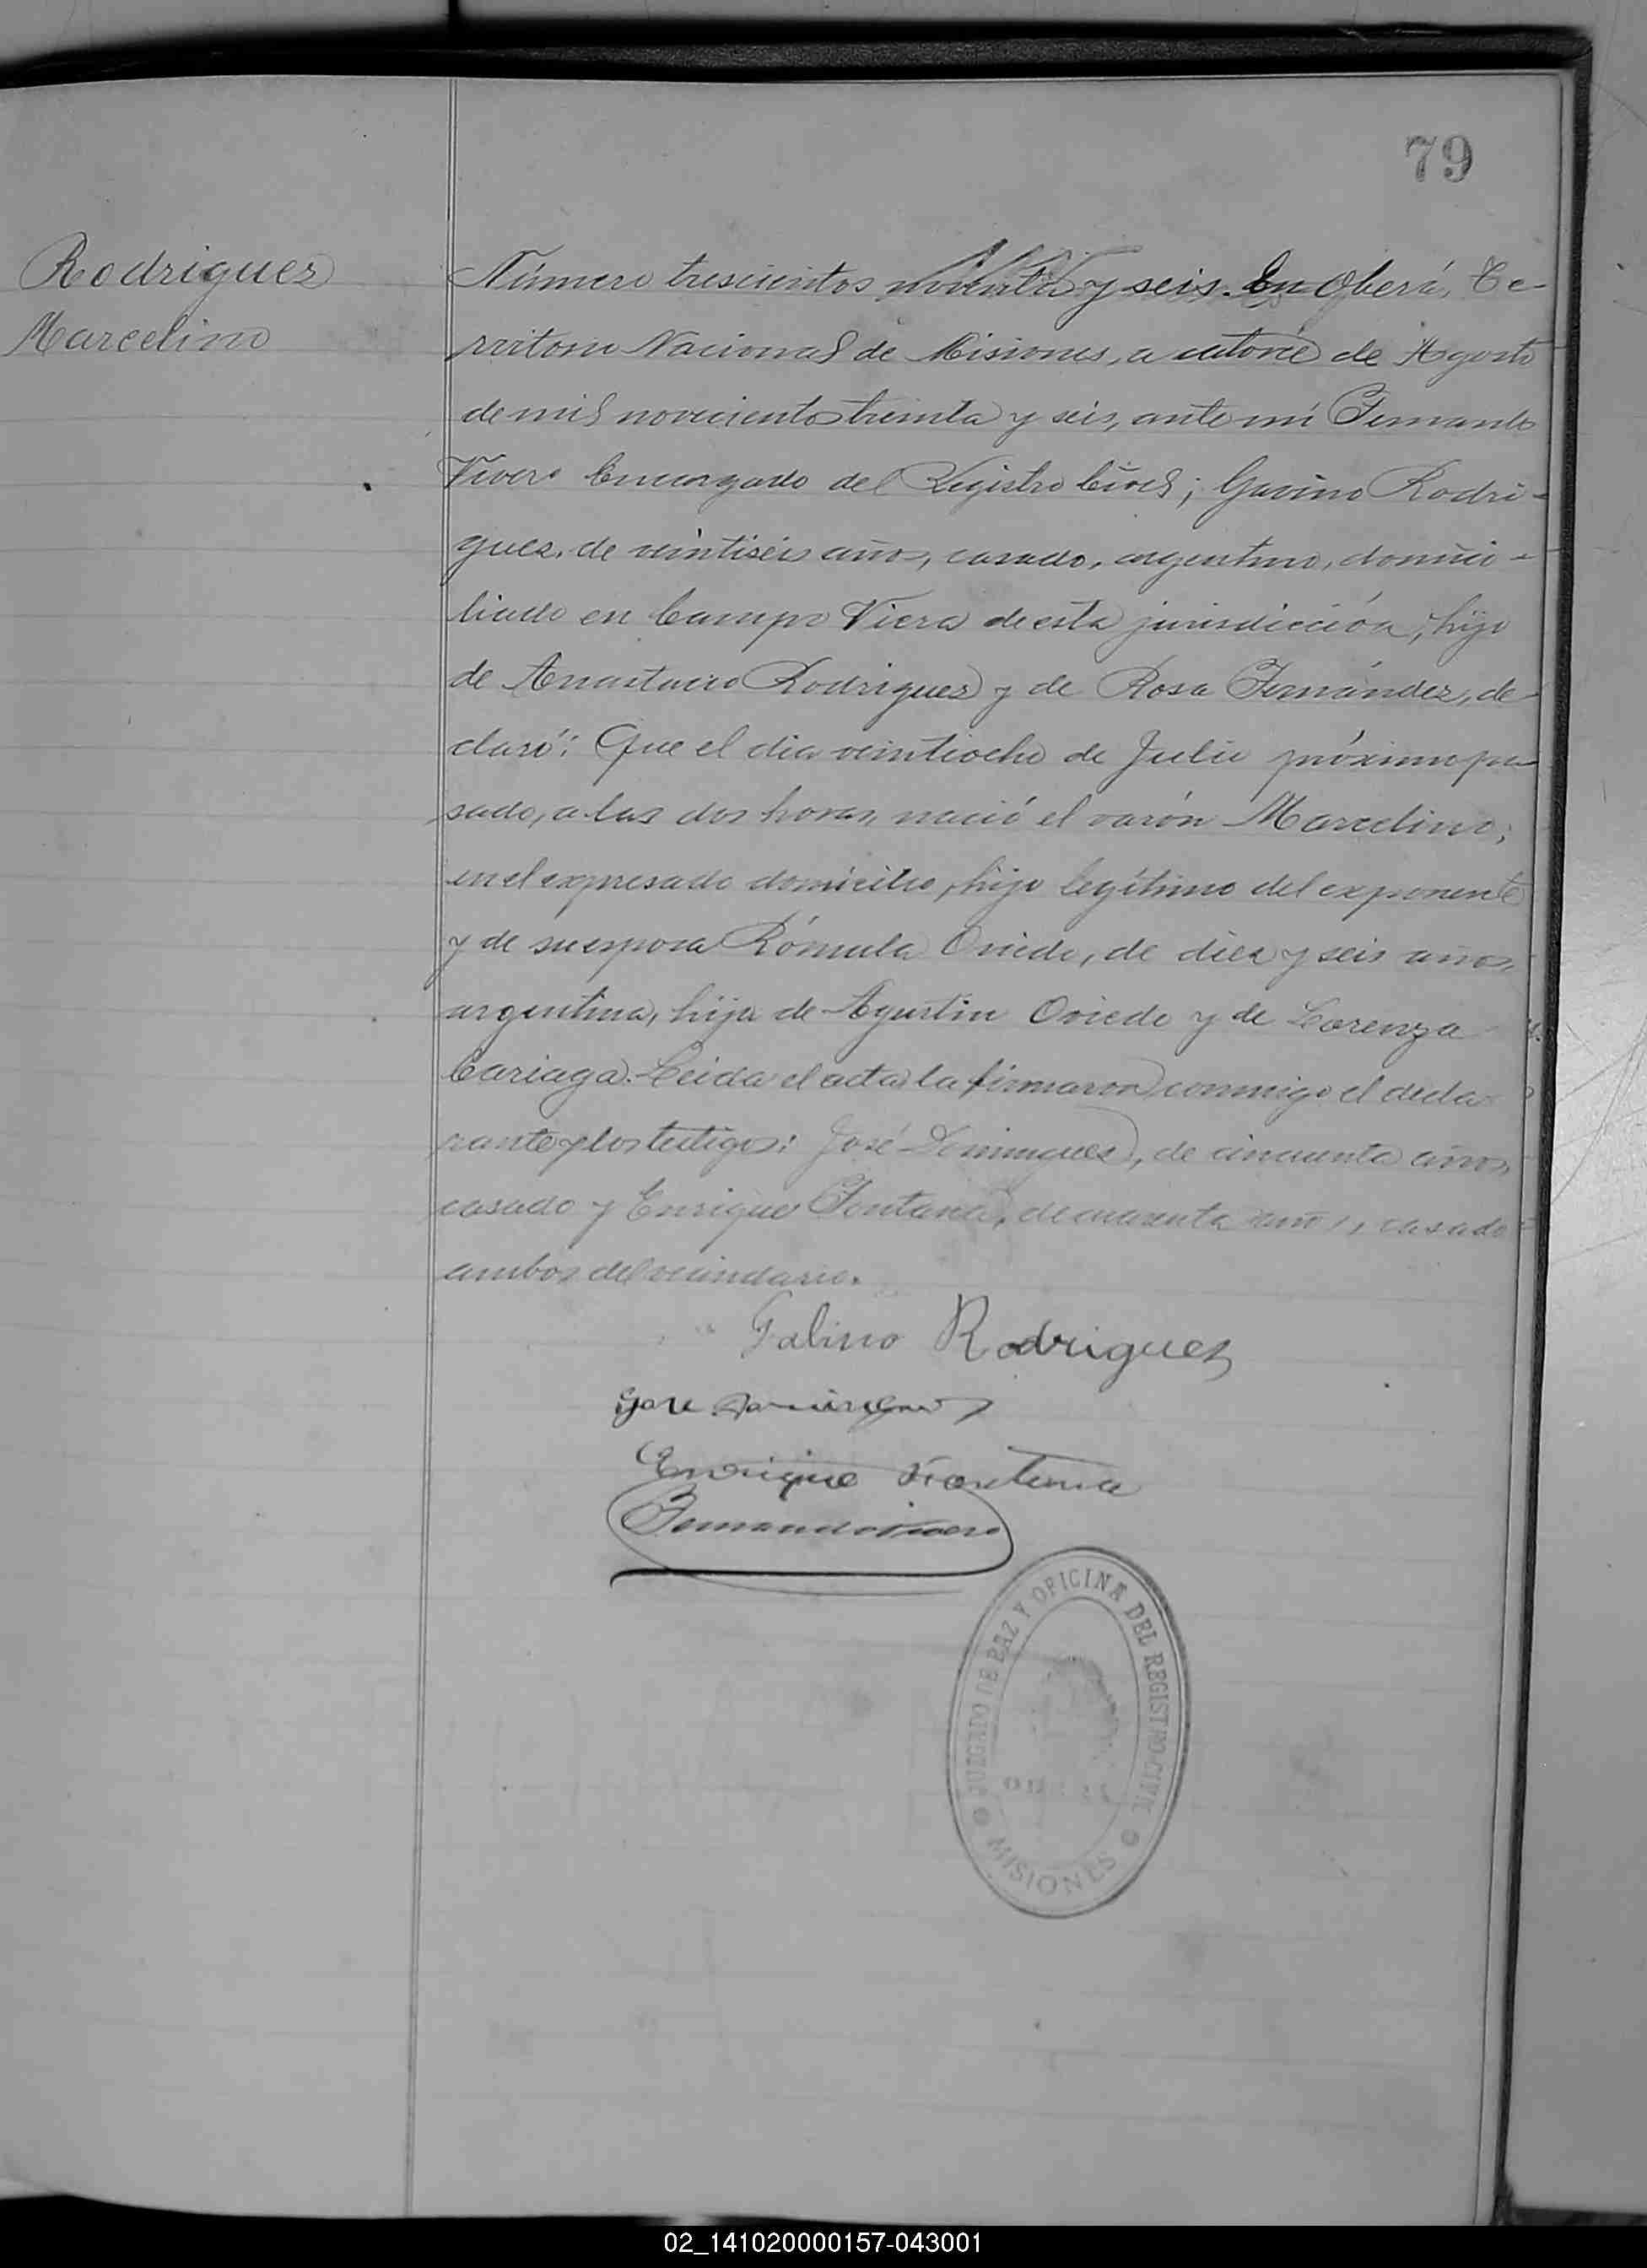 79
Rodriguez
Marcelino
Número trescientos noventa y seis. En Oberá, Te-
rritorio Nacional de Misiones, a catorce de Agosto
de mil novecientos treinta y seis, ante mí Fernando
Vivero Encargado del Registro Civil; Gavino Rodri-
guez, de veintiséis años, casado, argentino, domici-
liado en Campo Viera de esta jurisdicción, hijo
de Anastacio Rodriguez y de Rosa Fernández, de-
claró: Que el dia veintiocho de Julio próximo pa-
sado, a las dos horas, nació el varón Marcelino,
en el expresado domicilio, hijo legítimo del exponente
y de su esposa Rómula Oviedo, de diez y seis años,
argentina, hija de Agustin Oviedo y de Lorenza
Cariaga. Leida el acta la firmaron conmigo el decla-
rante y los testigos: José Dominguez, de cincuenta años,
casado y Enrique Fontana, de cuarenta años, casado
ambos del vecindario.
Galino Rodriguez
Jose
Enrique Fontana
Fernando Vivero
JUZGADO DE PAZ Y OFICINA DEL REGISTRO CIVIL
MISIONES
02_141020000157-043001